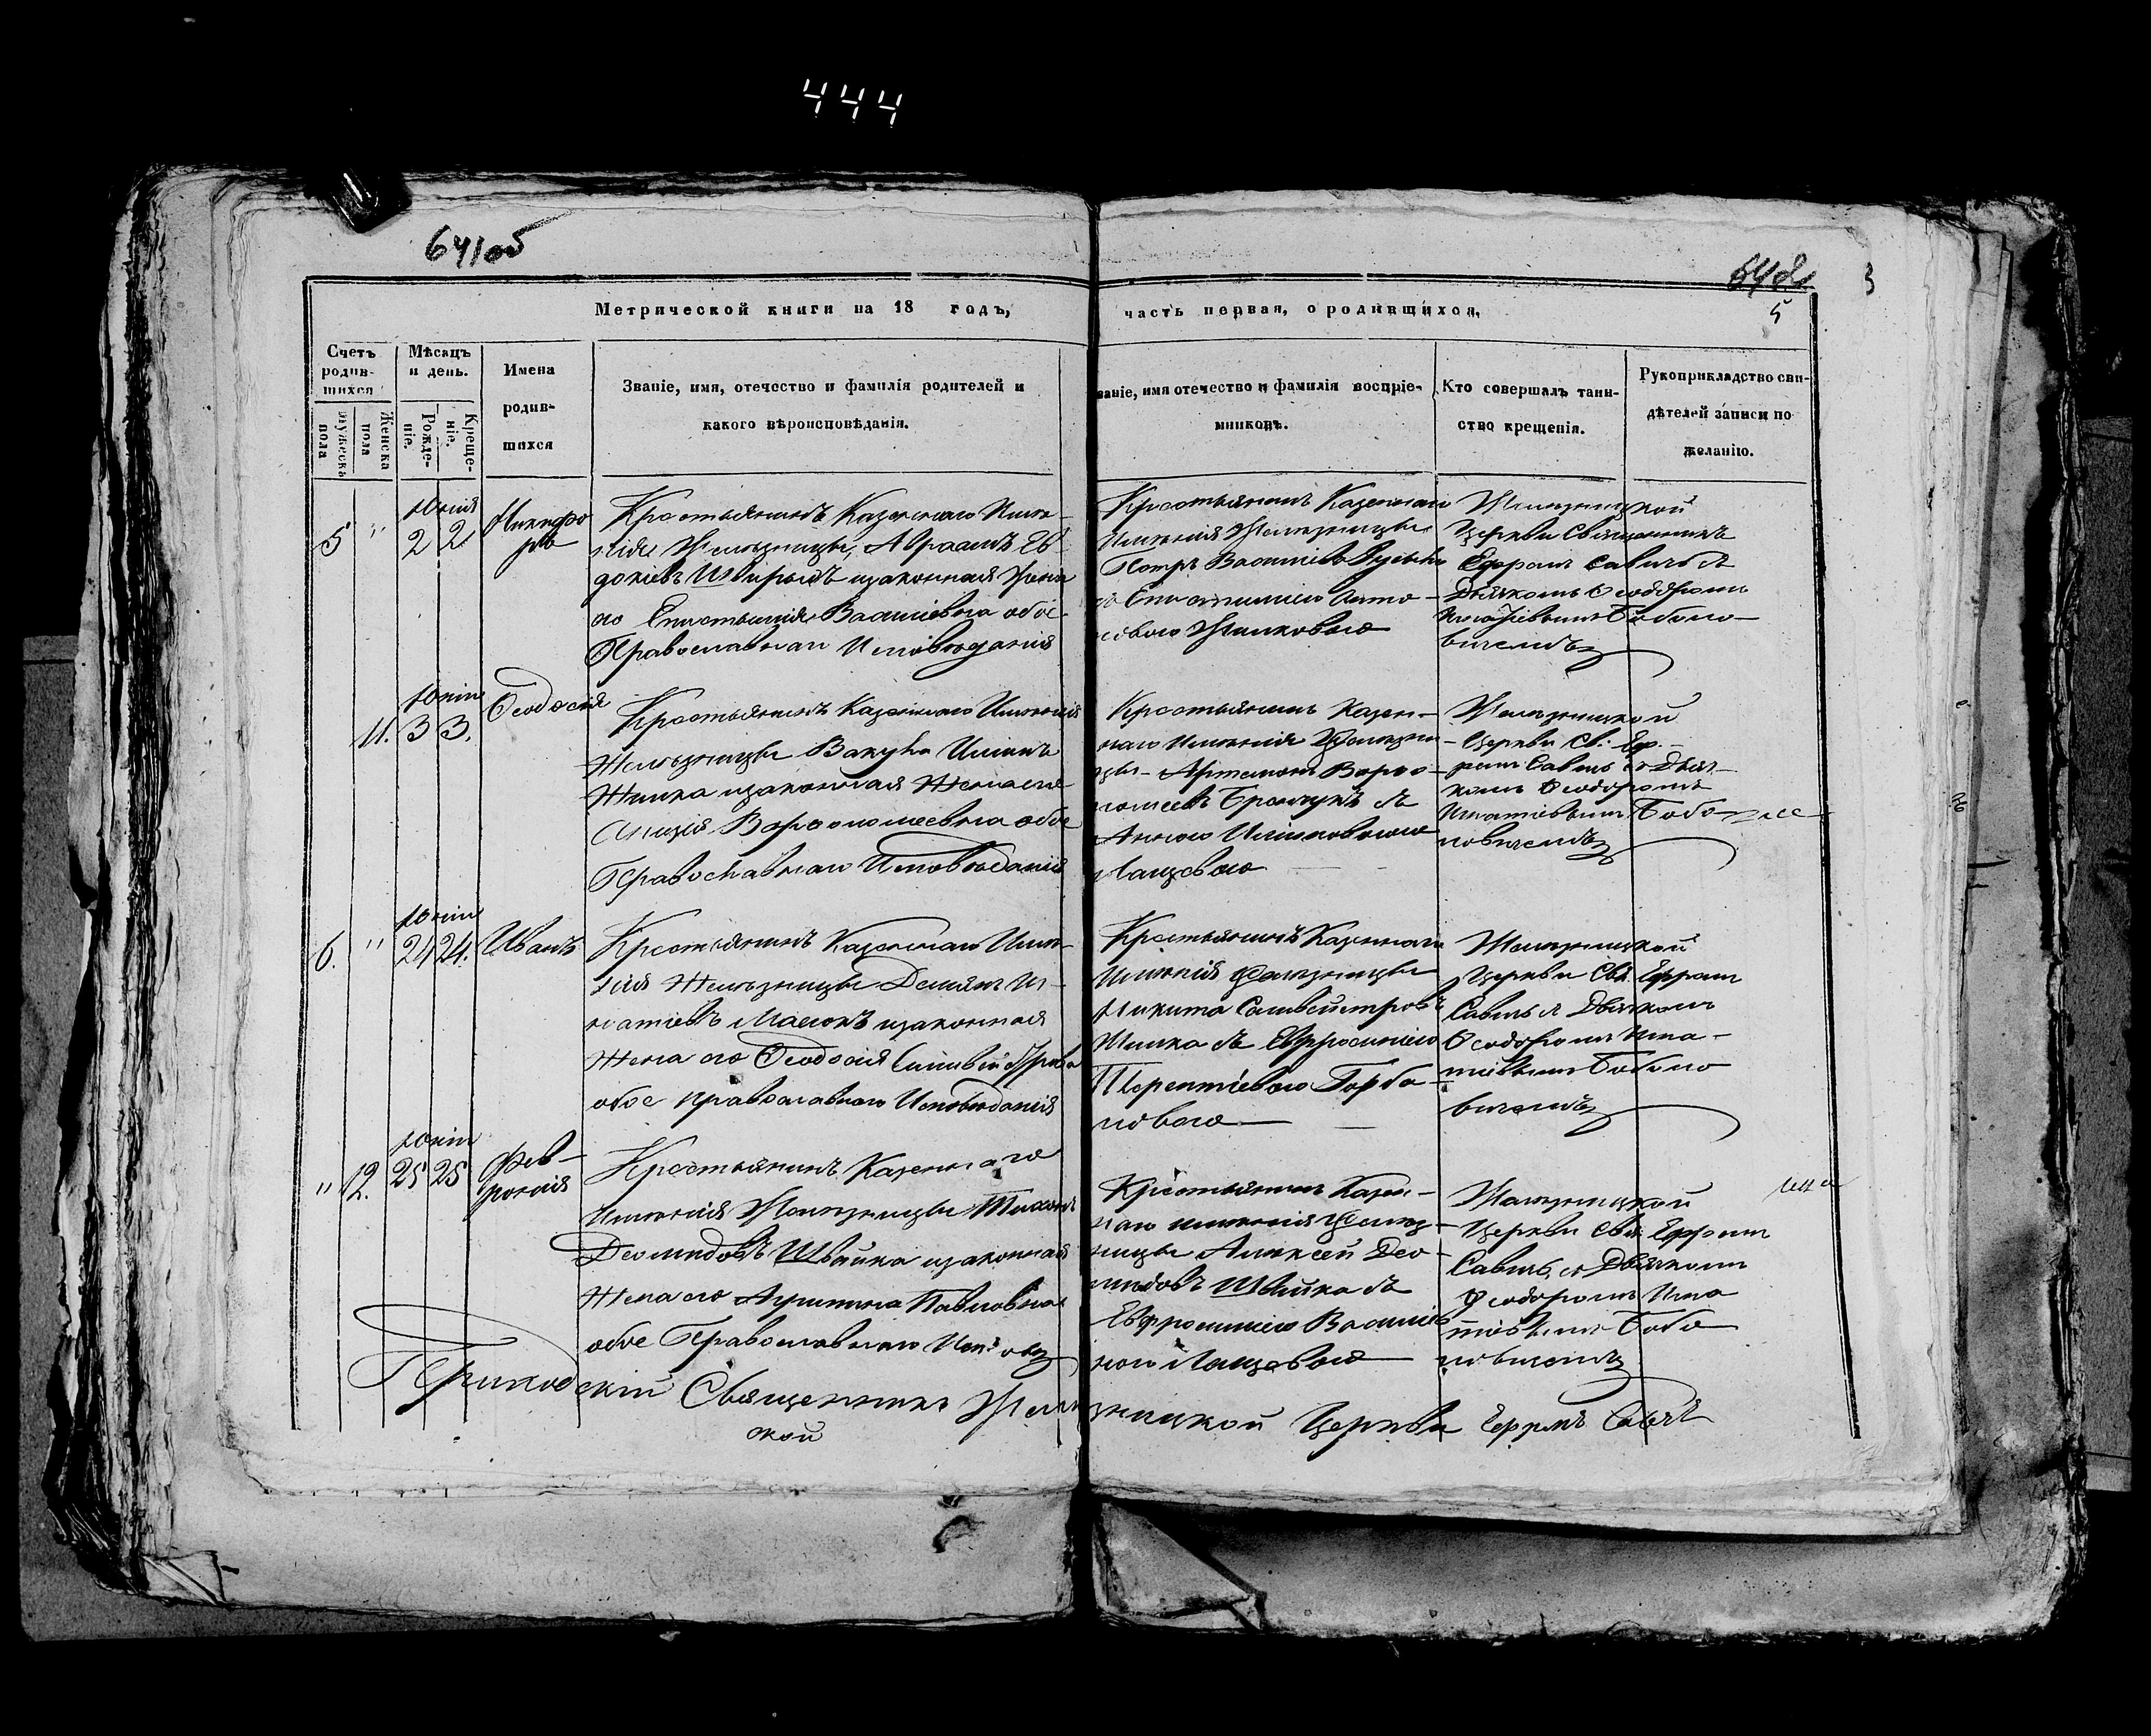 444
641об
642
3
5
Метрической книги на 18 годъ,
часть первая, о родившихся,
Счетъ родив-шихся
Мѣсяцъ и день.
Имена родив-шихся
Званіе, имя, отечество и фамилія родителей и
какого вѣроисповѣданія.
Званіе, имя отечество и фамилія воспріе-
мниковъ.
Кто совершалъ таин-
ство крещенія.
Рукоприкладство сви-
дѣтелей записи по
желанію.
Мужеска пола
Женска пола
Рожде-ніе.
Креще-ніе.
5 " Юнія 2 2 Никифо
ръ
Крестьянинъ Казеннаго Имѣ-
нія Желѣзницы, Авраамъ Ев-
докіевъ Швирыдъ изаконная Жена
его Епистимія Васіліевна обое
Православнаго Исповѣданія
Крестьянинъ Казеннаго
Имѣнія Желѣзницы
Петръ Василіевъ
съ Епистиміею Анто-
новою
Желѣзницкой
Церкви Священникъ
Ефремъ Савичъ съ
Дьячкомъ Ѳеодоромъ
Игнатіевымъ Бобоно-
вичемъ
11. Юнія 3 3. Ѳеодосія
Крестьянинъ Казеннаго Имѣнія
Желѣзницы Вакула Иліинъ
Жилка изаконная Жена его
Анизія Варѳоломеевна обое
Православнаго Исповѣданія
Крестьянинъ Казен-
наго Имѣнія Желѣзни
цы Артемонъ Варѳо-
ломеевъ съ
Анною Иліиновною
Лащевою
Желѣзницкой
Церкви Св: Еф-
ремъ Савичъ съ Дьяч-
комъ Ѳеодоромъ
Игнатіевымъ Бобо-
новичемъ
6. " Юнія 24 24. Иванъ
Крестьянинъ Казеннаго Имѣ-
нія Желѣзницы Деміянъ Иг-
натіевъ изаконная
Жена его Ѳеодосія Силивестрова
обое православнаго Исповѣданія
Крестьянинъ Казеннаго
Имѣнія Желѣзницы
Никита Сильвестровъ
Жилка съ Евфросиніею
Терентіевою Горба-
новою
Желѣзницкой
Церкви Свя. Ефремъ
Савичъ съ Дьячкомъ
Ѳеодоромъ Игна-
тіевымъ Бобоно
вичемъ
" 12. Юнія 25 25 Фев-
ронія
Крестьянинъ Казеннаго
Имѣнія Желѣзницы Тихонъ
Деомидовъ Швайка изаконная
Жена его Агрипина Павловна
обое Православнаго Исповѣ
Крестьянинъ Казен-
наго имѣнія Желѣз-
ницы Алексей Део-
мидовъ Швайка съ
Евфросиніею Василіе
ною Лащевою
Желѣзницкой
Церкви Свя. Ефремъ
Савичъ съ Дьячкомъ
Ѳеодоромъ Игна
тіевымъ Бобо
новичемъ
Приходскій Священникъ Желѣзницкой Церкви Ефремъ Савичъ